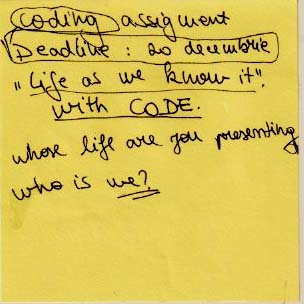 coding assigment
Deadline : 20 decembrie
"Life as we know it".
with CODE.
whose life are you presenting
who is we?